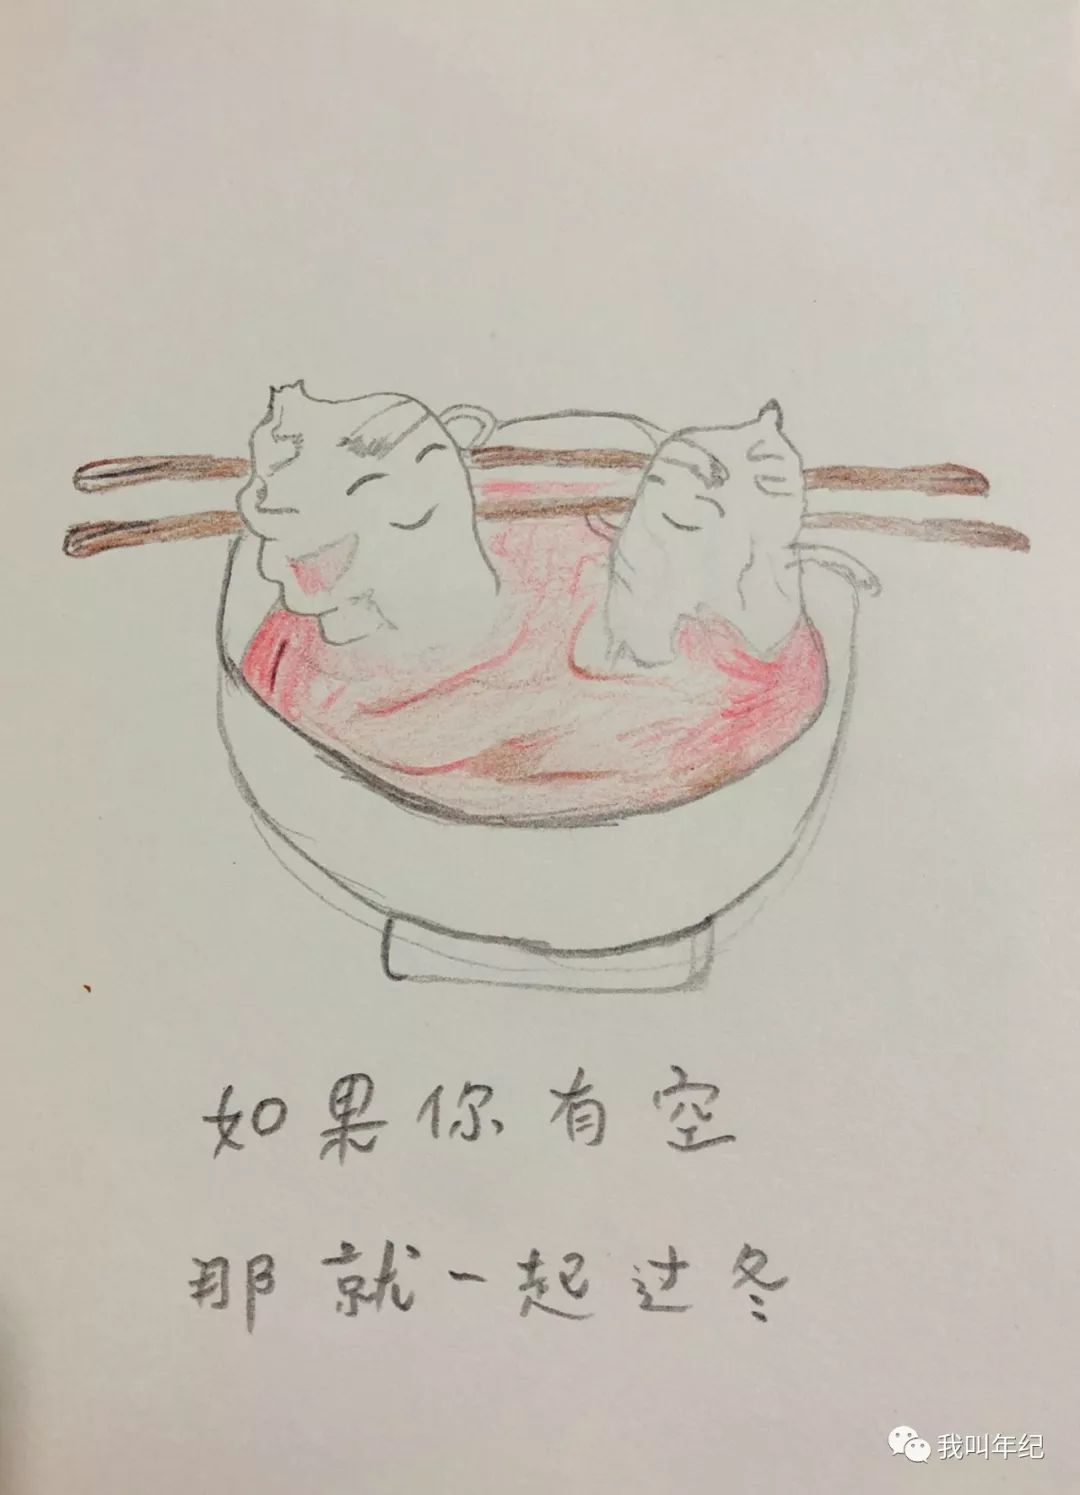 如果你有空
那就一起过冬
我叫年纪